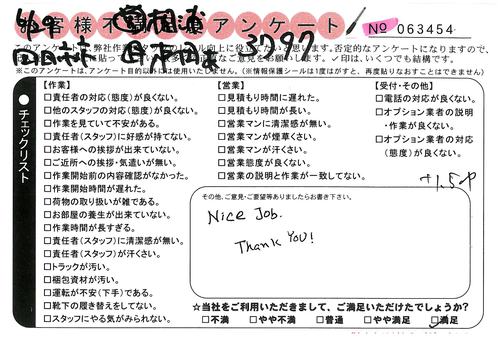 お客様不満アンケート
No 063454
6/29
3797
このアンケートは、弊社作業
に役立てたい
います。否定的なアンケートになりますので、
ご意見をお願いします。✓印は、いくつでも結構です。
※このアンケートは、アンケート目的以外には使用いたしません。(※情報保護シールは1度はがすと、再度貼りなおすことはできません)
●チェックリスト
【作業】
□責任者の対応(態度)が良くない。
□他のスタッフの対応(態度)が良くない。
□作業を見ていて不安がある。
□責任者(スタッフ)に好感が持てない。
□お客様への挨拶が出来ていない。
□ご近所への挨拶・気遣いが無い。
□作業開始前の内容確認がなかった。
□作業開始時間が遅れた。
□荷物の取り扱いが雑である。
□お部屋の養生が出来ていない。
□作業時間が長すぎる。
□責任者(スタッフ)に清潔感が無い。
□責任者(スタッフ)が汗くさい。
□トラックが汚い。
□梱包資材が汚い。
□運転が不安(下手)である。
□靴下の履き替えをしてない。
□スタッフにやる気がみられない。
【営業】
□見積もり時間に遅れた。
□見積もり時間が長い。
□営業マンに清潔感が無い。
□営業マンが煙草くさい。
□営業マンが汗くさい。
□営業態度が良くない。
□営業の説明と作業が一致してない。
【受付・その他】
□電話の対応が良くない。
□オプション業者の説明
・作業が良くない。
□オプション業者の対応
(態度)が良くない。
+1.5P
その他、ご意見・ご要望等ありましたらお書き下さい。
Nice Job.
Thank You!
☆当社をご利用いただきまして、ご満足いただけたでしょうか?
□不満 □やや不満 □普通 □やや満足 ☑満足